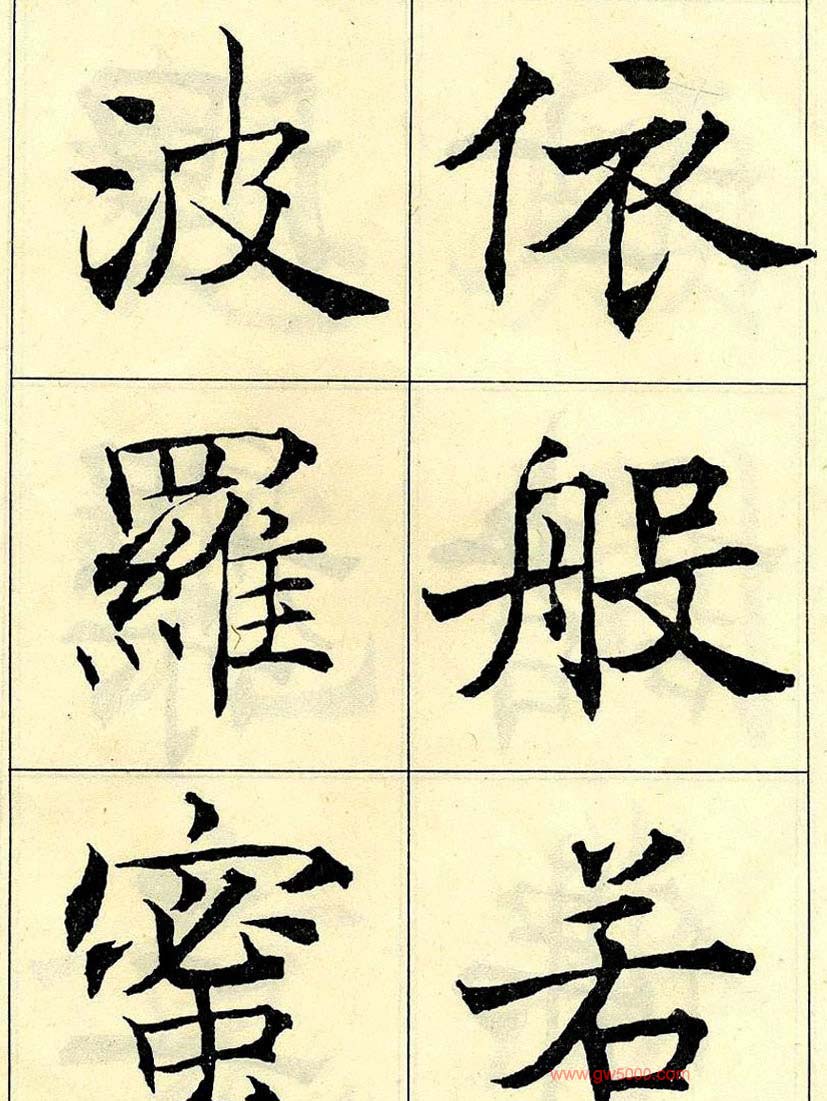 依般若
波羅蜜
www.gw5000.com